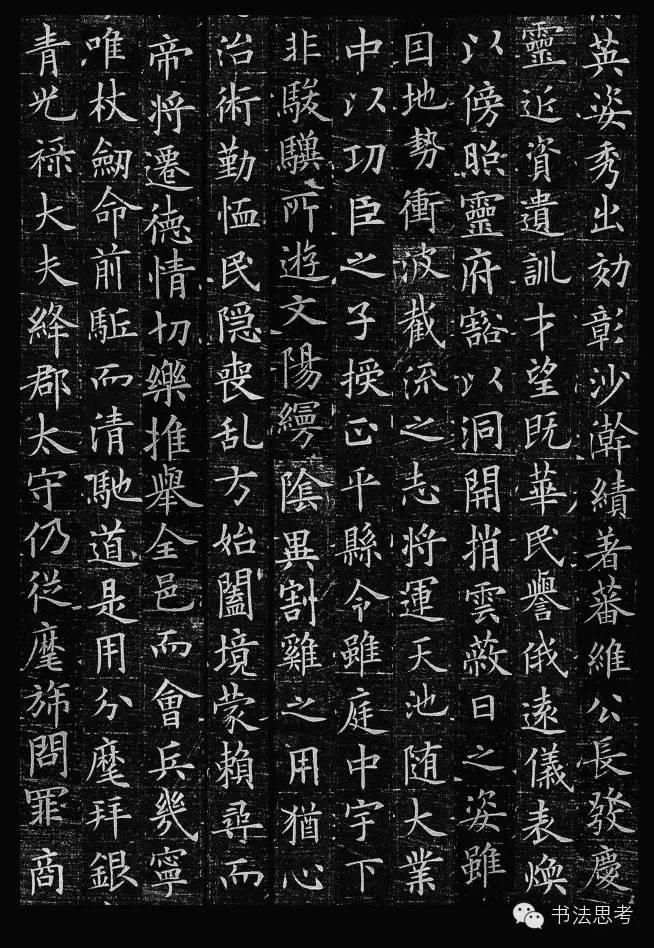 英姿秀出刻彰沙澣績著蕃維公長發慶
靈近資遺訓才望既華民譽俄遠儀表煥
以傍照靈府豁以洞開捎雲蔽日之姿雖
因地勢衝波截流之志將運天池随大業
中以功臣之子授正平縣令雖庭中宇下
非駿驥所遊文陽縵陰異割雞之用猶心
治術勤恤民隠喪乱方始闔境蒙賴尋而
帝将遷德情切樂推舉全邑而會兵幾寧
唯杖劒命前駈而清馳道是用分麾拜銀
青光禄大夫絳郡太守仍從麾旆問罪商
书法思考